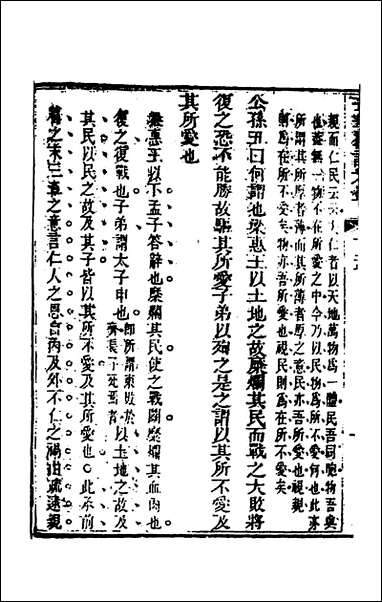 親而仁民云云仁者以天地萬物爲一體民吾同胞物吾與
也蓋無一物不在所愛之中今乃以民物爲所不愛何也此亦
所謂其所厚者薄而其所薄者厚之意民亦吾所愛也視親
則爲在所不愛矣物亦吾所愛也視民則爲在所不愛矣
公孫丑曰何謂也梁惠王以土地之故糜爛其民而戰之大敗將
復之恐不能勝故驅其所愛子弟以殉之是之謂以其所不愛及
其所愛也
梁惠王以下孟子答辭也糜爛其民使之戰鬪糜爛其血肉也
復之復戰也子弟謂太子申也卽所謂東敗於齊長子死焉者以土地之故及
其民以民之故及其子皆以其所不愛及其所愛也此承前
篇之末三章之意言仁人之恩自內及外不仁之禍由疏逮親